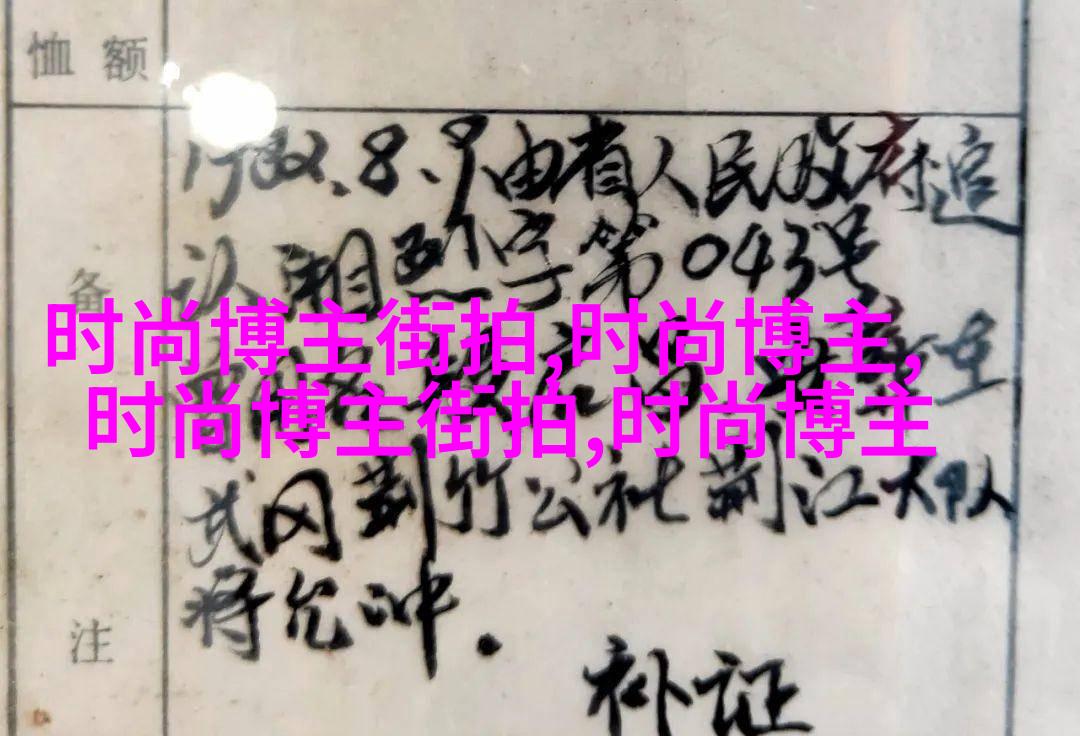 恤额
备
注
1982.8.9由省人民政府追
认湘烈字第043号
时尚博主街拍,时尚博主,
时尚博主街拍,时尚博主
武冈荆竹公社荆江大队
蒋允冲.
补证